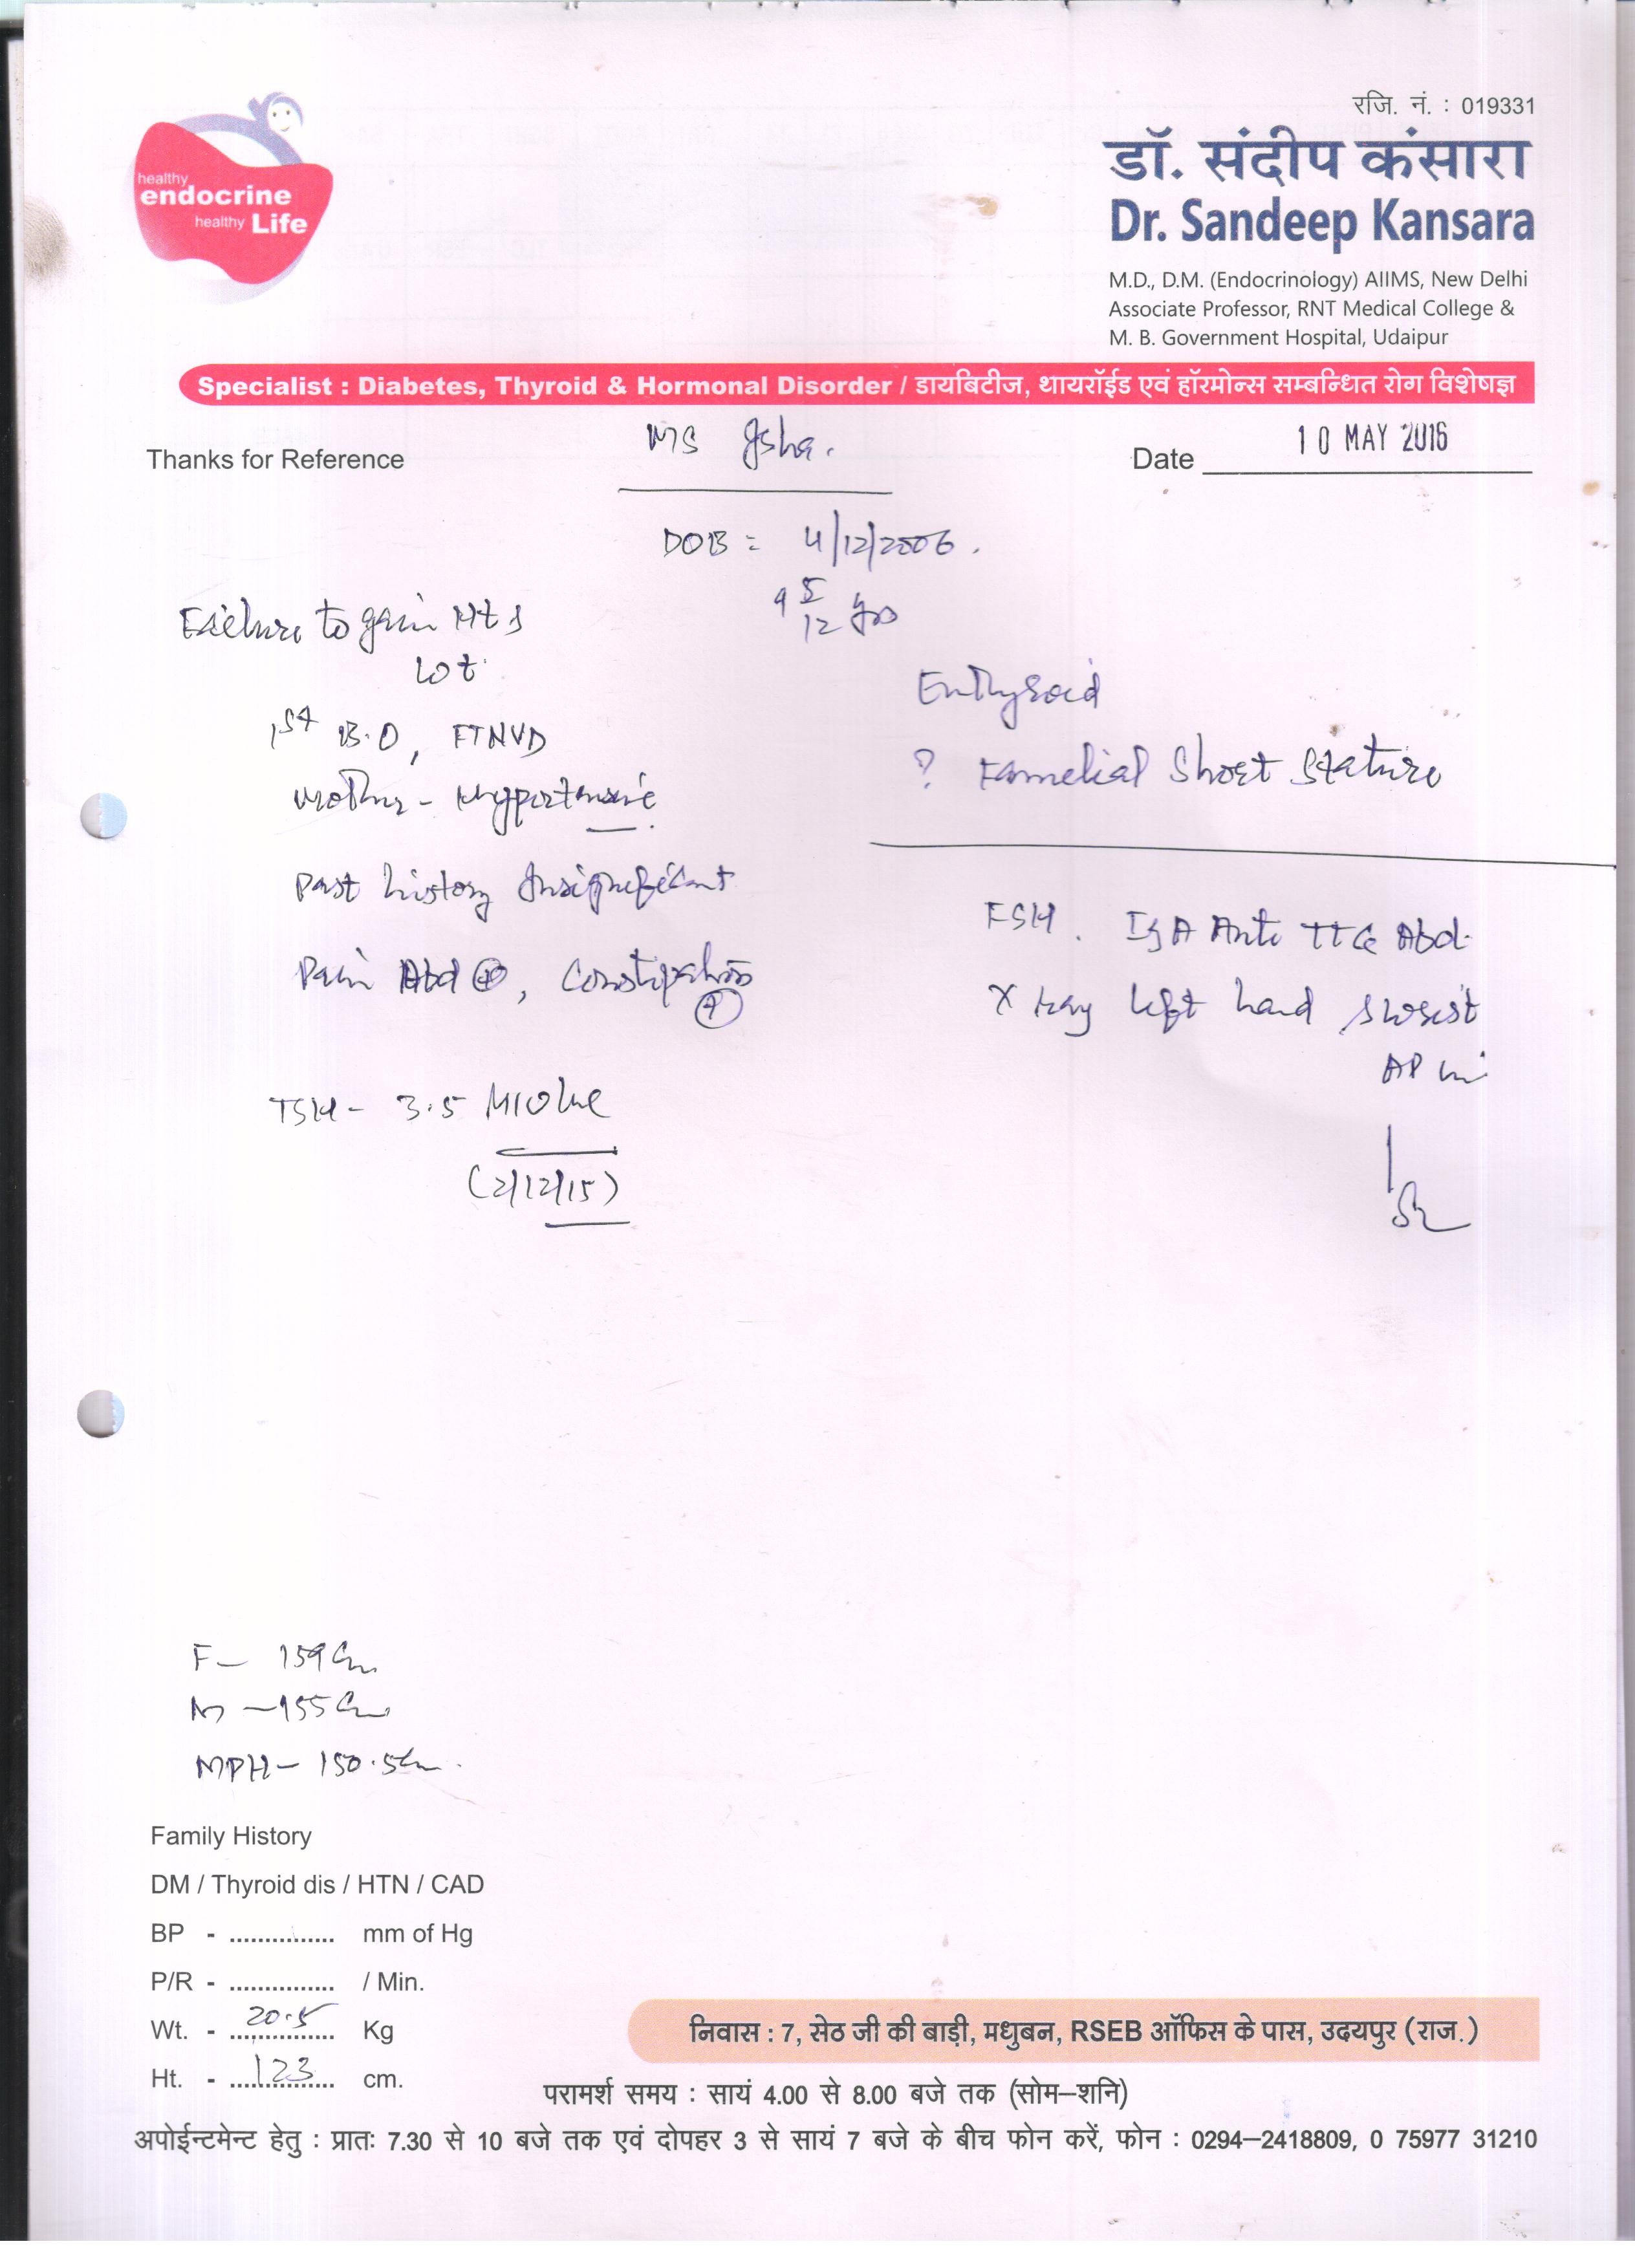 healthy
endocrine
healthy Life
रजि. नं. : 019331
डॉ. संदीप कंसारा
Dr. Sandeep Kansara
M.D., D.M. (Endocrinology) AIIMS, New Delhi
Associate Professor, RNT Medical College &
M. B. Government Hospital, Udaipur
Specialist : Diabetes, Thyroid & Hormonal Disorder / डायबिटीज, थायरॉईड एवं हॉरमोन्स सम्बन्धित रोग विशेषज्ञ
Thanks for Reference
Ms
Date 10 MAY 2016
DOB = 4/12/2006.
9 5/12 yrs
Failure to gain Ht &
wt.
1st B.O, FTNVD
Mother - Hypertensive
Past history Insignificant
Pain Abd ⊕, Constipation
⊕
TSH - 3.5
(2/12/15)
Euthyroid
? Familial Short Stature
FSH. IgA Anti TTG Abd.
X ray left hand & wrist
AP
F - 159 Cm
M - 155 Cm
MPH - 150.5 Cm.
Family History
DM / Thyroid dis / HTN / CAD
BP - ............... mm of Hg
P/R - ............... / Min.
Wt. - 20.5 Kg
Ht. - 123 cm.
निवास : 7, सेठ जी की बाड़ी, मधुबन, RSEB ऑफिस के पास, उदयपुर (राज.)
परामर्श समय : सायं 4.00 से 8.00 बजे तक (सोम–शनि)
अपोईन्टमेन्ट हेतु : प्रातः 7.30 से 10 बजे तक एवं दोपहर 3 से सायं 7 बजे के बीच फोन करें, फोन : 0294–2418809, 0 75977 31210